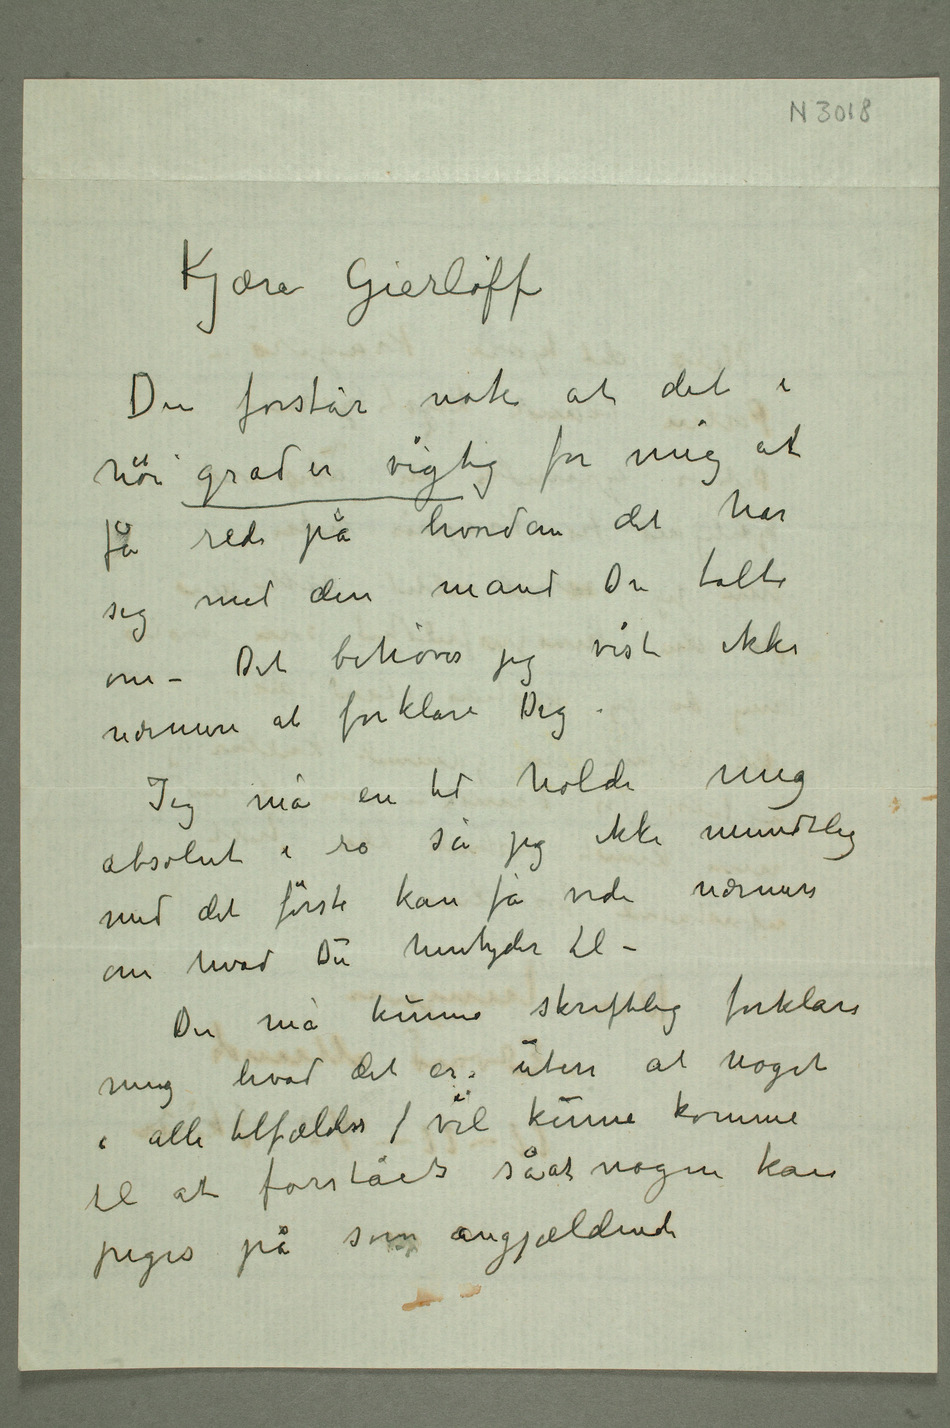 N 3018
Kjære Gierløff
Du forstår nok at det i
höi grad er vigtig for mig at
få rede på hvordan det har
sig med den mand Du talte
om – Det behøver jeg vist ikke
nærmere at forklare Dig.
Jeg må en tid holde mig
absolut i ro så jeg ikke mundtlig
med det förste kan få vide nærmere
om hvad Du hentyder til –
Du må kunne skriftlig forklare
mig hvad det er. uten at noget
i alle tilfælder / vil kunne komme
til at forståes såat nogen kan
peges på som angjældende